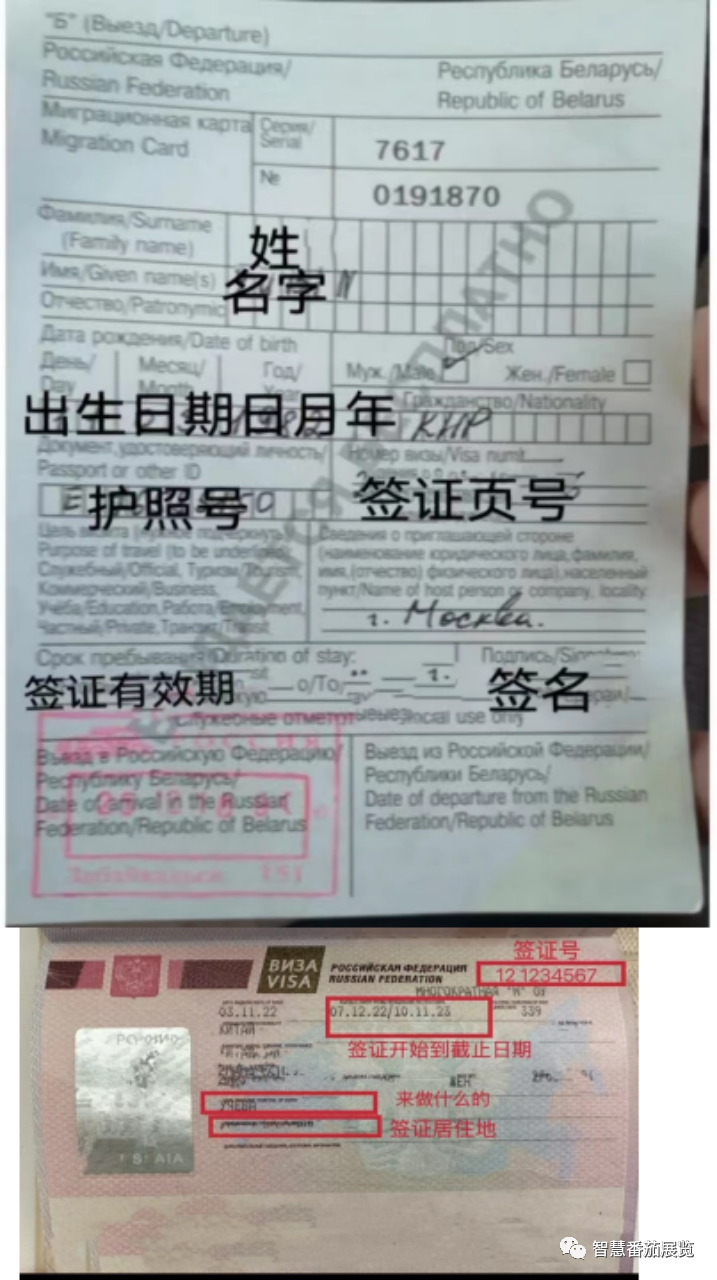 "Б" (Выезд/Departure)
Российская Федерация/
Russian Federation
Республика Беларусь/
Republic of Belarus
Миграционная карта
Migration Card
Серия/
Serial
7617
№
0191870
Фамилия/Surname
(Family name)
姓
Имя/Given name(s)
名字
Отчество/Patronymic
Дата рождения/Date of birth
Пол/Sex
День/
Day
Месяц/
Month
Год/
Year
Муж./Male
Жен./Female
Гражданство/Nationality
出生日期日月年
КНР
Документ, удостоверяющий личность/
Passport or other ID
Номер визы/Visa
护照号
签证页号
Цель визита (нужное подчеркнуть)/
Purpose of travel (to be underlined):
Служебный/Official, Туризм/Tourism,
Коммерческий/Business,
Учёба/Education, Работа/Employment,
Частный/Private, Транзит/Transit
Сведения о приглашающей стороне
(наименование юридического лица, фамилия,
имя, (отчество) физического лица), населенный
пункт/Name of host person or company, locality
г. Москва.
Срок пребывания/Duration of stay:
Подпись/
о/To
签证有效期
签名
Служебные use only
Въезд в Российскую Федерацию/
Республику Беларусь/
Date of arrival in the Russian
Federation/Republic of Belarus
Выезд из Российской Федерации/
Республики Беларусь/
Date of departure from the Russian
Federation/Republic of Belarus
151
签证号
ВИЗА
VISA
РОССИЙСКАЯ ФЕДЕРАЦИЯ
RUSSIAN FEDERATION
12 1234567
МНОГОКРАТНАЯ
03.11.22
07.12.22/10.11.23
339
КИТАЙ
签证开始到截止日期
ЖЕН
УЧЕБА
来做什么的
签证居住地
智慧番茄展览